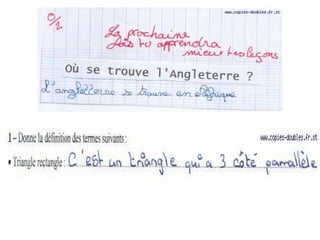 www.copies-doubles.fr.st
0/2
La prochaine
fois tu apprendra
mieux tes leçons
Où se trouve l'Angleterre ?
L'anglettere se trouve en Afrique
I – Donne la définition des termes suivants :
www.copies-doubles.fr.st
• Triangle rectangle : C'est un triangle qui a 3 côté parrallèle